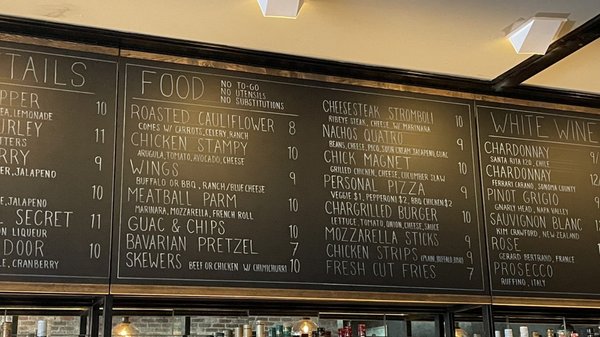 TAILS
PPER
EA, LEMONADE 10
URLEY 11
TTERS
RRY 9
JALAPENO
10
JALAPENO
SECRET 11
ON LIQUEUR
DOOR 10
LE, CRANBERRY
FOOD
NO TO-GO
NO UTENSILS
NO SUBSTITUTIONS
ROASTED CAULIFLOWER 8
COMES W/ CARROTS, CELERY, RANCH
CHICKEN STAMPY 10
ARUGULA, TOMATO, AVOCADO, CHEESE
WINGS 9
BUFFALO OR BBQ, RANCH/BLUE CHEESE
MEATBALL PARM 10
MARINARA, MOZZARELLA, FRENCH ROLL
GUAC & CHIPS 10
BAVARIAN PRETZEL 7
SKEWERS BEEF OR CHICKEN W/ CHIMICHURRI 10
CHEESESTEAK STROMBOLI 10
RIBEYE STEAK, CHEESE W/ MARINARA
NACHOS QUATRO 9
BEANS, CHEESE, PICO, SOUR CREAM, JALAPENO, GUAC
CHICK MAGNET 10
GRILLED CHICKEN, CHEESE, CUCUMBER SLAW
PERSONAL PIZZA 9
VEGGIE $1, PEPPERONI $2, BBQ CHICKEN $2
CHARGRILLED BURGER 10
LETTUCE, TOMATO, ONION, CHEESE, SAUCE
MOZZARELLA STICKS 9
CHICKEN STRIPS (PLAIN, BUFFALO, BBQ) 9
FRESH CUT FRIES 7
WHITE WINE
CHARDONNAY 9/
SANTA RITA 120, CHILE
CHARDONNAY 12/
FERRARI CARANO, SONOMA COUNTY
PINOT GRIGIO 9/
GNARLY HEAD, NAPA VALLEY
SAUVIGNON BLANC
KIM CRAWFORD, NEW ZEALAND
ROSE
GERARD BERTRAND, FRANCE
PROSECCO
RUFFINO, ITALY